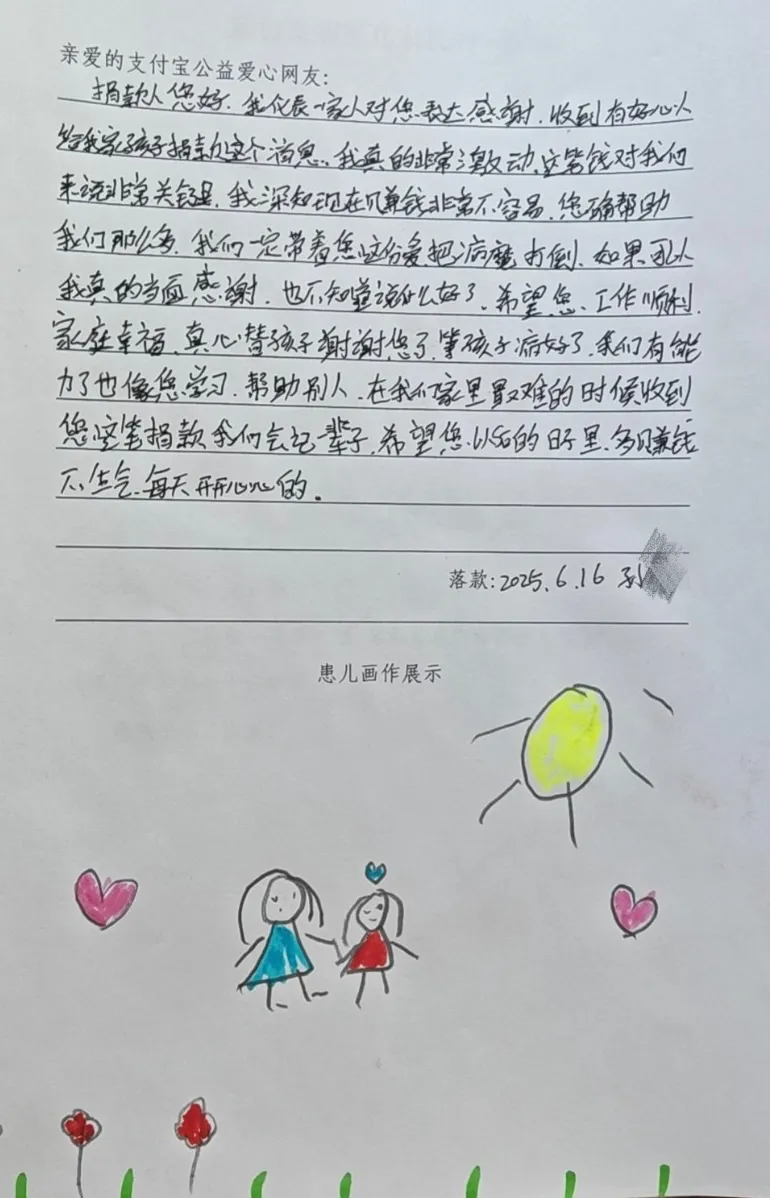 亲爱的支付宝公益爱心网友:
捐款人您好.我代表一家人对您表达感谢.收到有好心人
给我家孩子捐款这个消息.我真的非常激动.这笔钱对我们
来说非常关键.我深知现在赚钱非常不容易.您确帮助
我们那么多.我们一定带着您这份爱.把病魔打倒.如果可以
我真的当面感谢.也不知道说什么好了.希望您.工作顺利.
家庭幸福.真心替孩子谢谢您了.等孩子病好了.我们有能
力了也像您学习.帮助别人.在我们家里最难的时候收到
您这笔捐款我们会记一辈子.希望您.以后的日子里.多赚钱
不生气.每天开开心心的.
落款:2025.6.16 孙
患儿画作展示